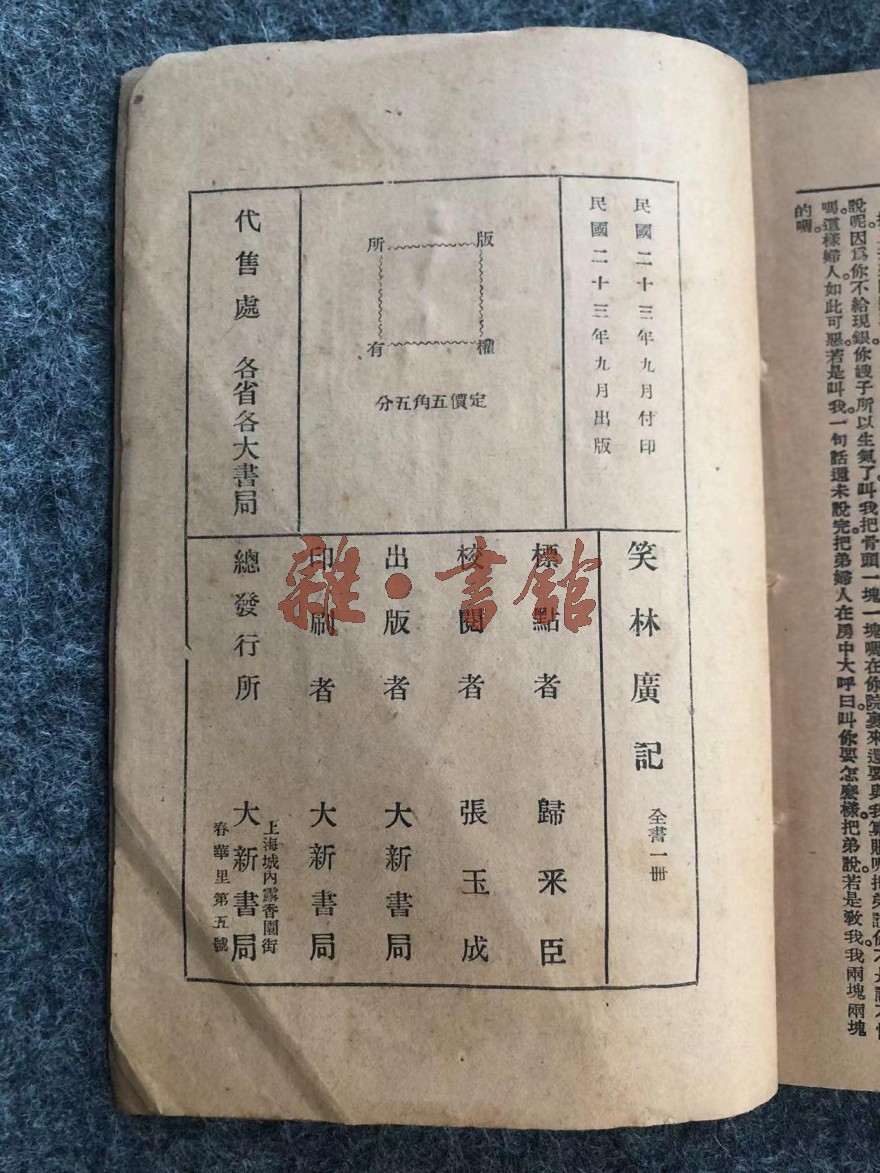 的嘴
嗎這樣婦人如此可惡若是叫我一句話還未說完把弟婦人在房中大呼曰叫你要怎麽樣把弟說若是教我我兩塊兩塊
說呢因爲你不給現銀你嫂子所以生氣了叫我把骨頭一塊一塊嗎在你院裏來還要與我算賬
民國二十三年九月付印
民國二十三年九月出版
版權所有
定價五角五分
代售處 各省各大書局
笑林廣記 全書一冊
標點者 歸釆臣
校閱者 張玉成
出版者 大新書局
印刷者 大新書局
總發行所 大新書局
上海城內露香園街
春華里第五號
雜·書館